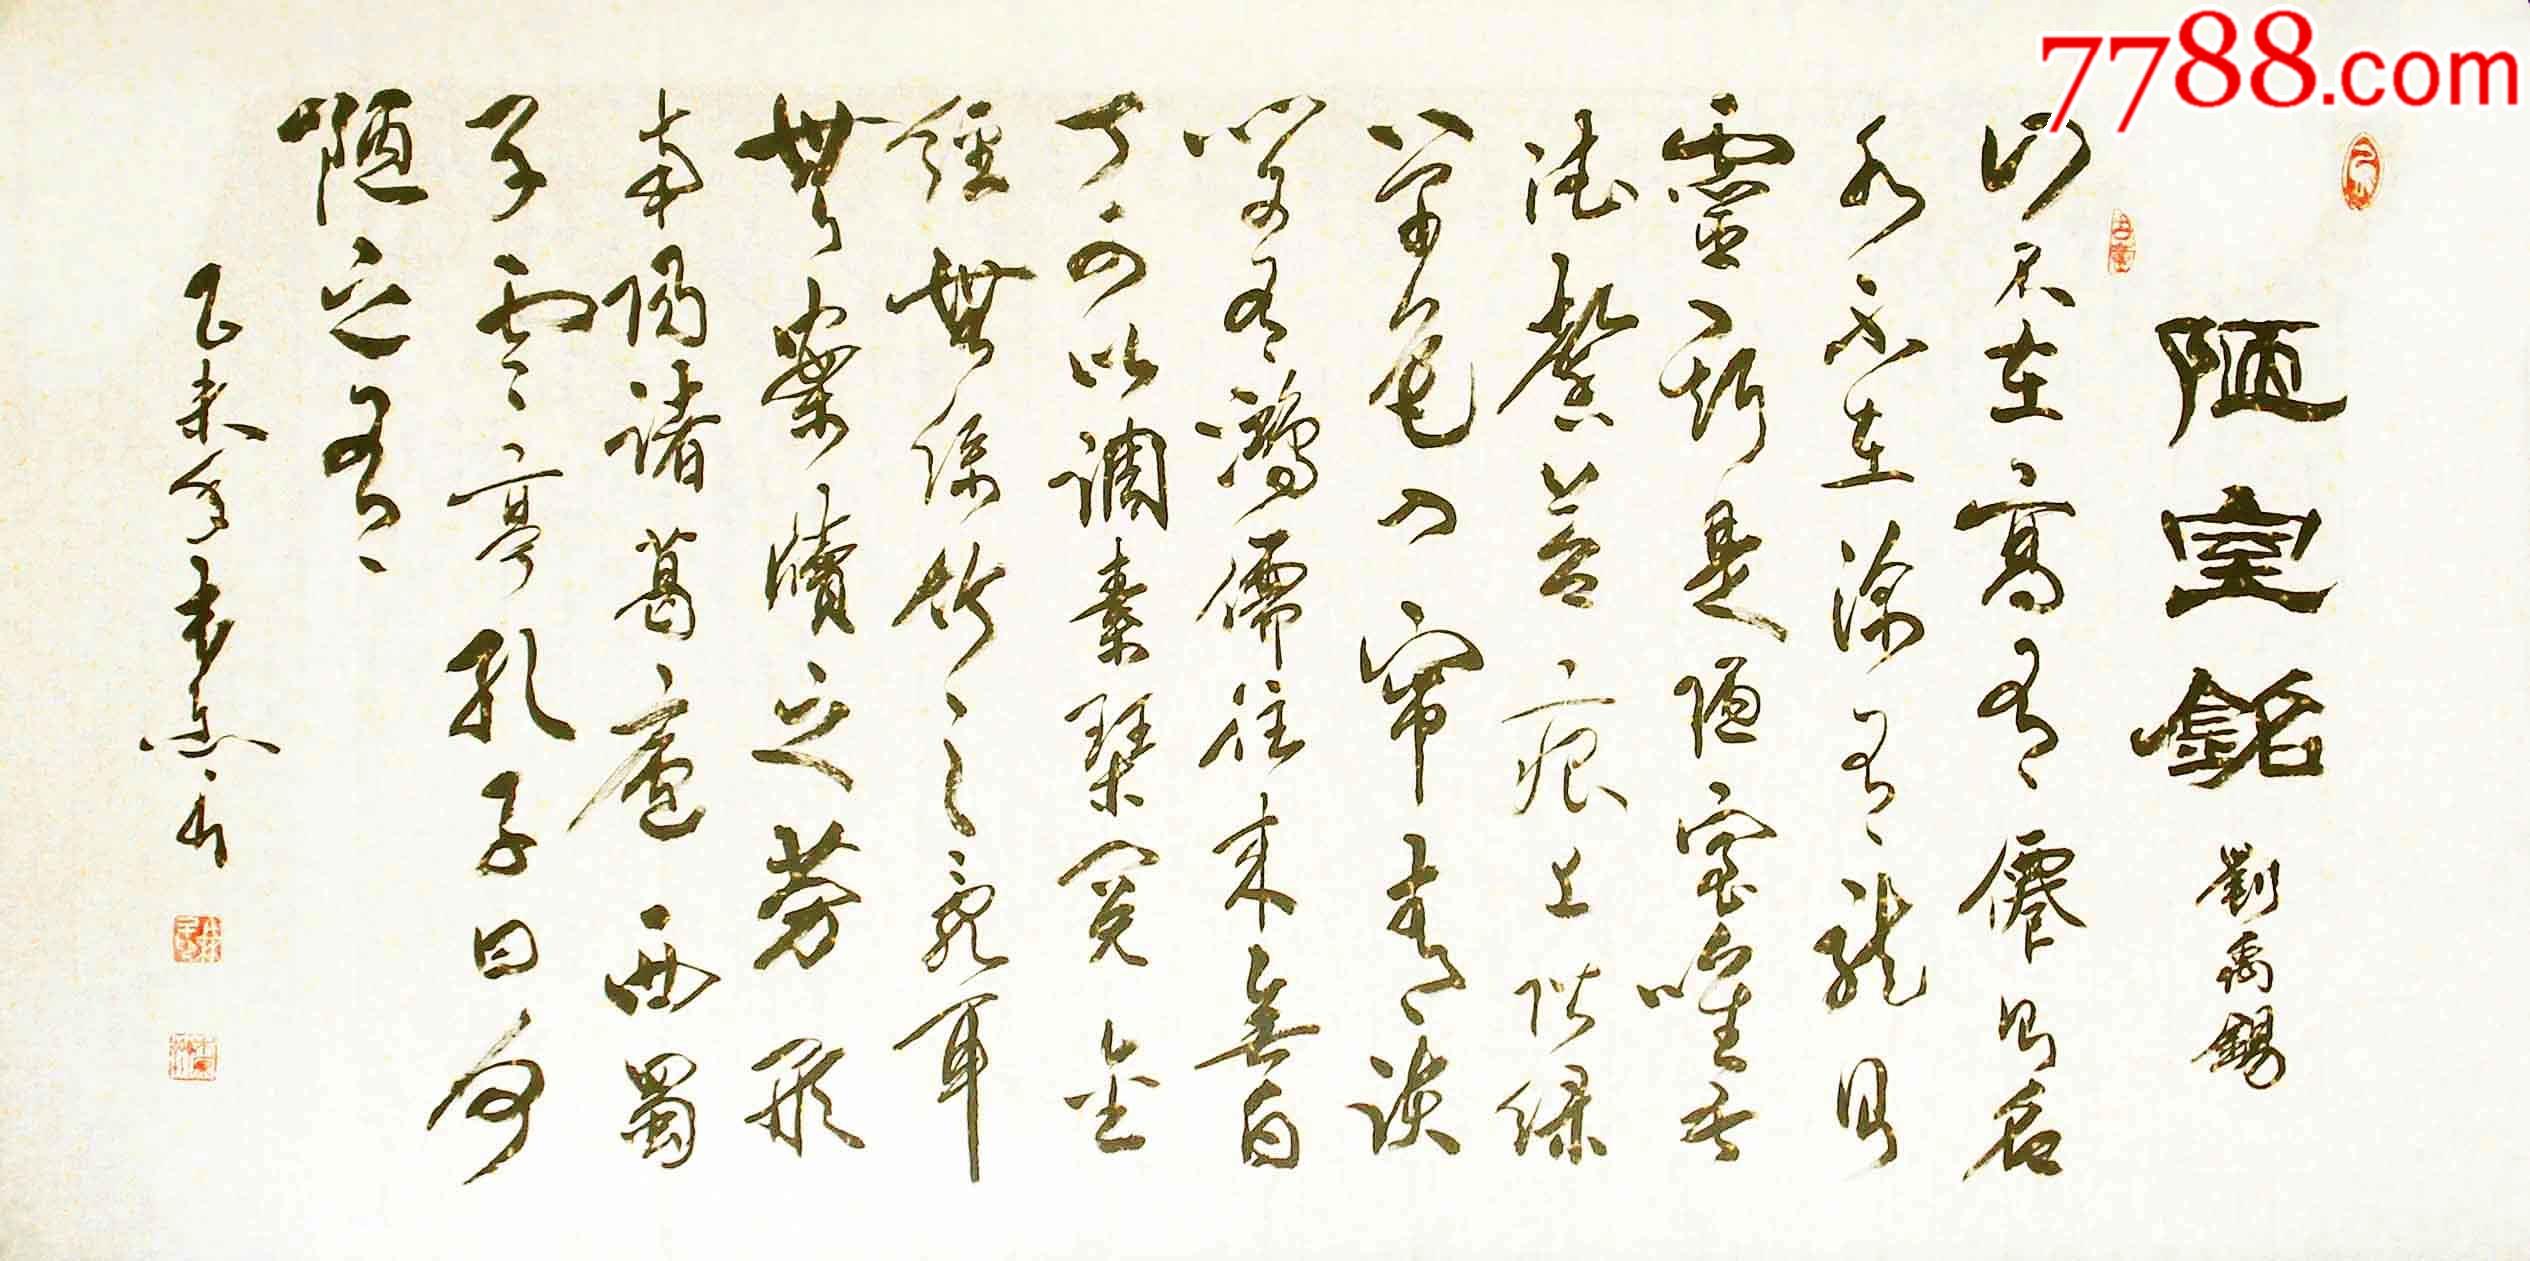 7788.com
陋室銘 劉禹錫
山不在高有僊則名
水不在深有龍則
靈斯是陋室唯吾
德馨苔痕上階綠
草色入帘青談
笑有鴻儒往來無白
丁可以調素琴閱金
經無絲竹之亂耳
無案牘之勞形
南陽諸葛廬西蜀
子雲亭孔子曰何
陋之有
乙未年